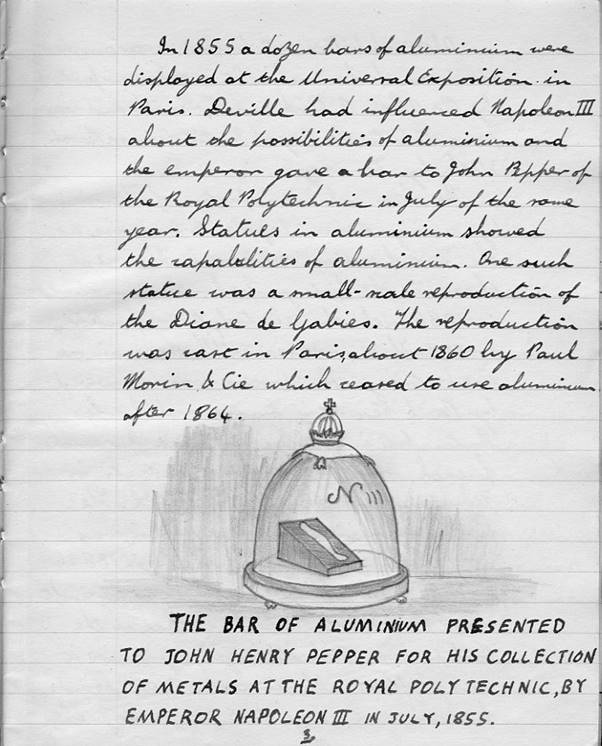 In 1855 a dozen bars of aluminium were
displayed at the Universal Exposition in
Paris. Deville had influenced Napoleon III
about the possibilities of aluminium and
the emperor gave a bar to John Pepper of
the Royal Polytechnic in July of the same
year. Statues in aluminium showed
the capabilities of aluminium. One such
statue was a small-scale reproduction of
the Diane de Gabies. The reproduction
was cast in Paris, about 1860 by Paul
Morin & Cie which ceased to use aluminium
after 1864.
N III
THE BAR OF ALUMINIUM PRESENTED
TO JOHN HENRY PEPPER FOR HIS COLLECTION
OF METALS AT THE ROYAL POLYTECHNIC, BY
EMPEROR NAPOLEON III IN JULY, 1855.
3